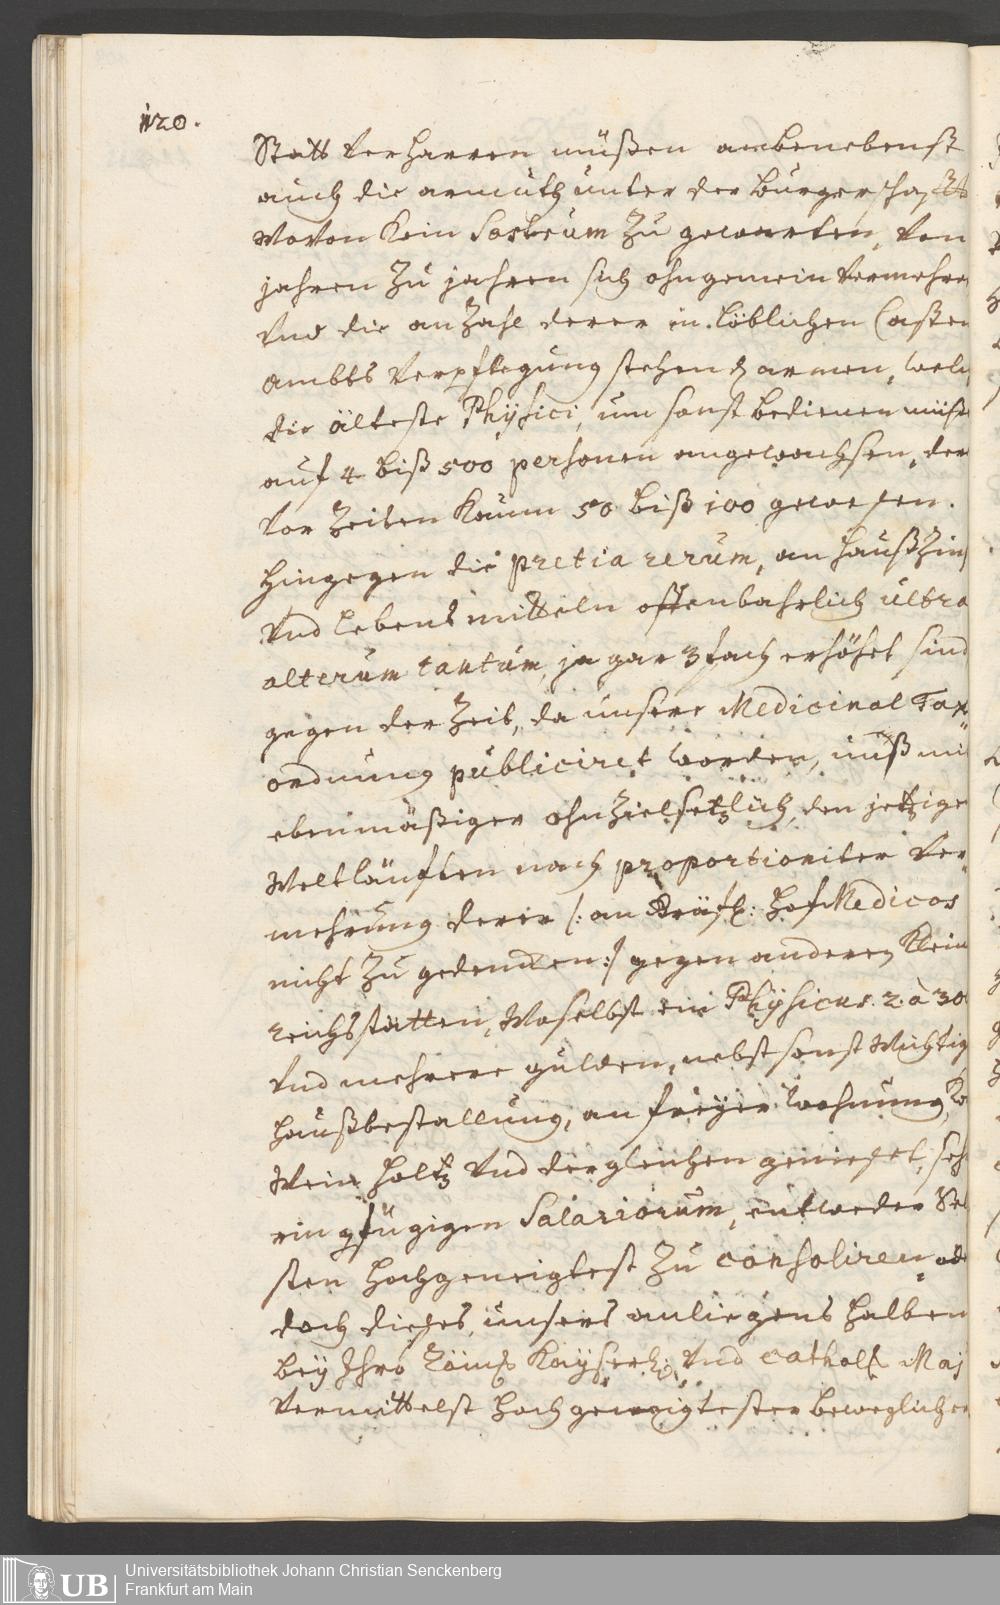 120.
Statt verharren müßen ambenebenst
auch die armuth unter der burgerschafft
wovon kein Sostrum zu gewarten, von
jahren zu jahren sich ohngemein vermehre
und die anzahl derer in löblichen Casten
ambts verpflegung stehend armen, welch
die älteste Physici, um sonst bedienen müße
auf 4 biß 500 personen angewachsen, der
vor zeiten kaum 50 biß 100 gewesen.
hingegen die pretia rerum, an haußzinß
und lebens mitteln offenbahrlich ultra
alterum tantum, ja gar 3fach erhöhet sind
gegen der zeit, da unsere Medicinal Tax
ordnung publiciret worden, muß mit
ebenmäßiger ohnzielsetzlich, den jetzige
Weltläufften nach proportionirter ver
mehrung derer /: an Gräfl: hof Medicos
nicht zu gedencken :/ gegen anderen klein
reichsstätten, woselbst ein Physicus 2. à 300
und mehrere gulden, nebst sonst wichtig
haußbestallung, an freyer wohnung,
Wein holtz und dergleichen genießet, seh
ringfügigen Salariorum, entweder Sel
sten hochgeneigtest zu consoliren od
doch dieses unsers anliegens halben
bey Ihro Römß Kayserl: und cathol Maj
vermittelst hoch geneigtester beweglicher
Universitätsbibliothek Johann Christian Senckenberg
UB Frankfurt am Main